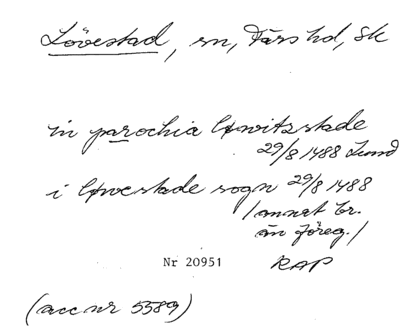 Lövestad, sn, Färs hd, Sk
in parochia Løwitzstade
29/8 1488 Lund
i Løvestade sogn 29/8 1488
/annat br.
än föreg./
Nr 20951
RAP
(acc nr 5589)